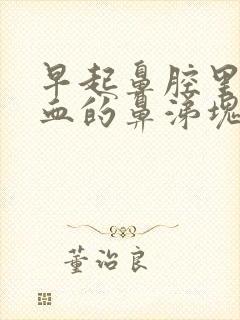 早起鼻腔里
血的鼻涕块
董治良